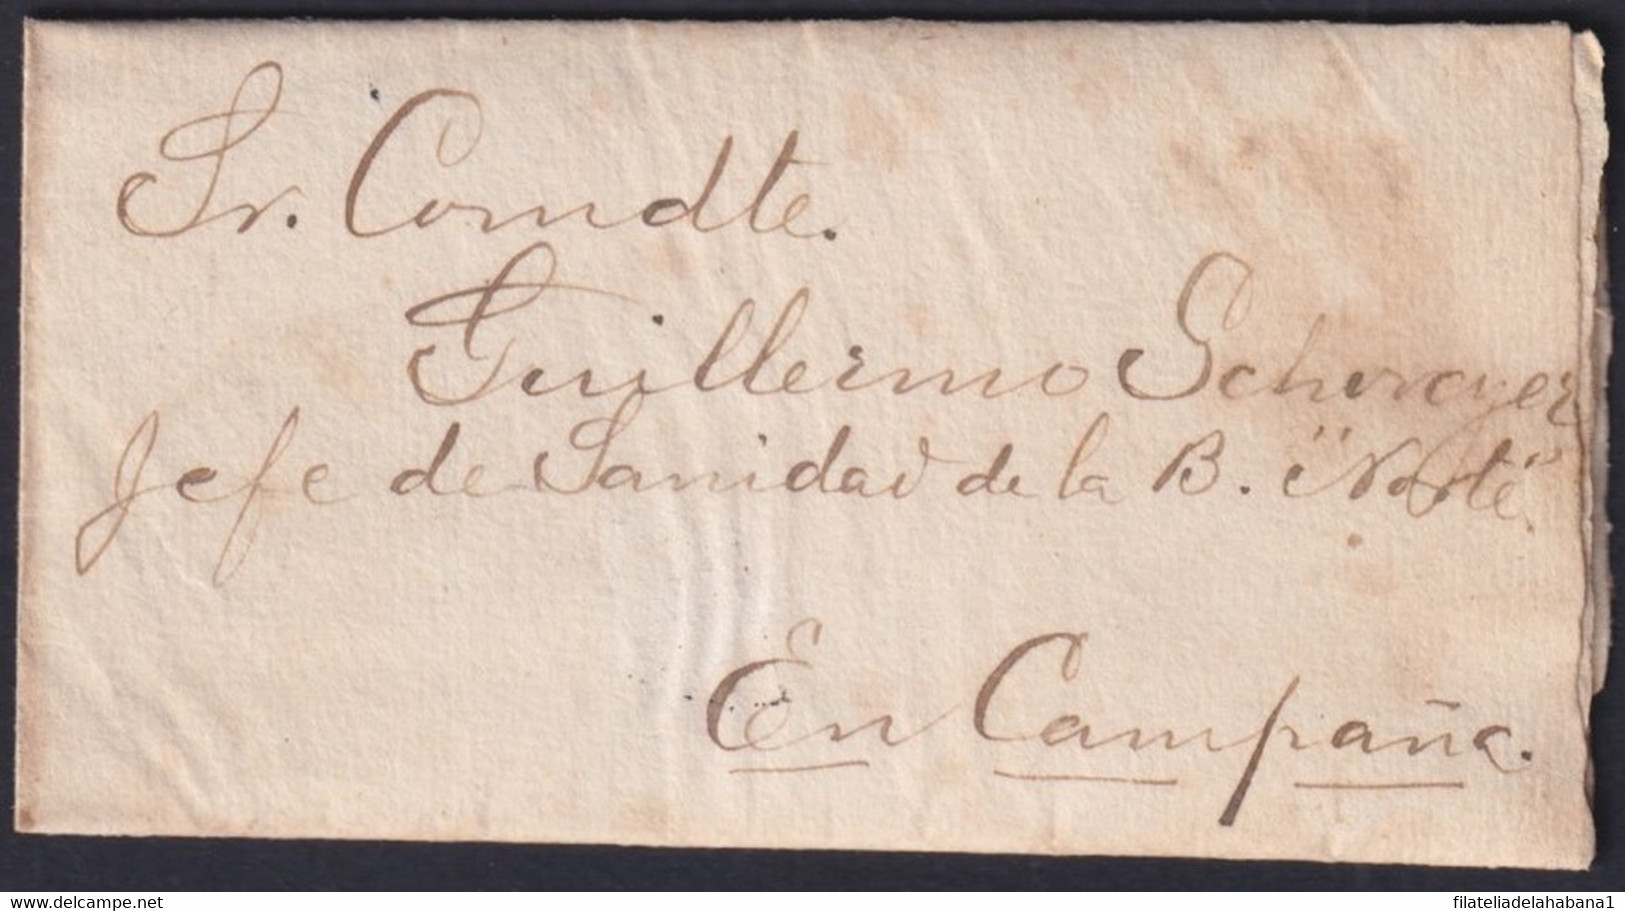 Sr. Comdte.
Guillermo Schweyer
Jefe de Sanidad de la B. "Norte".
En Campaña.
www.delcampe.net
filateliadelahabana1